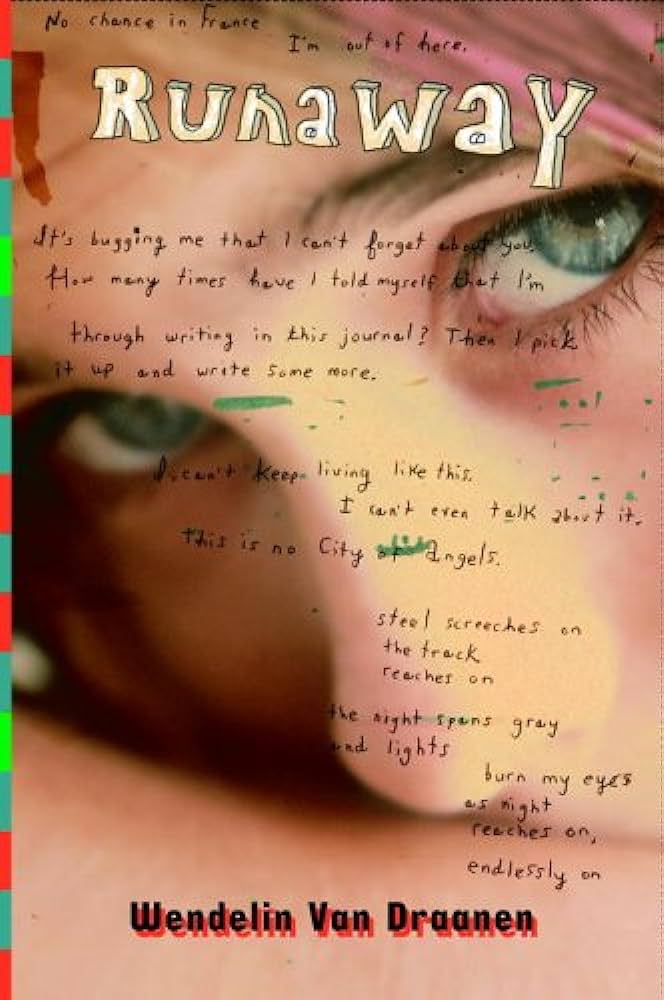 No chance in France
I'm out of here.
Runaway
It's bugging me that I can't forget about you.
How many times have I told myself that I'm
through writing in this journal? Then I pick
it up and write some more.
I can't keep living like this.
I can't even talk about it.
This is no City of Angels.
steel screeches on
the track
reaches on
the night spans gray
and lights
burn my eyes
as night
reaches on,
endlessly on
Wendelin Van Draanen